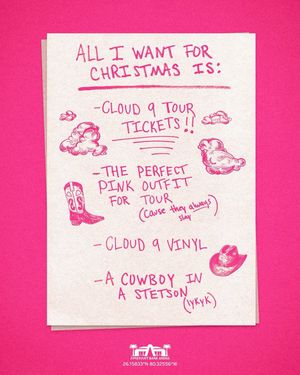 ALL I WANT FOR
CHRISTMAS IS:
-CLOUD 9 TOUR
TICKETS!!
-THE PERFECT
PINK OUTFIT
FOR TOUR
(Cause they always
slay)
-CLOUD 9 VINYL
-A COWBOY IN
A STETSON
(iykyk)